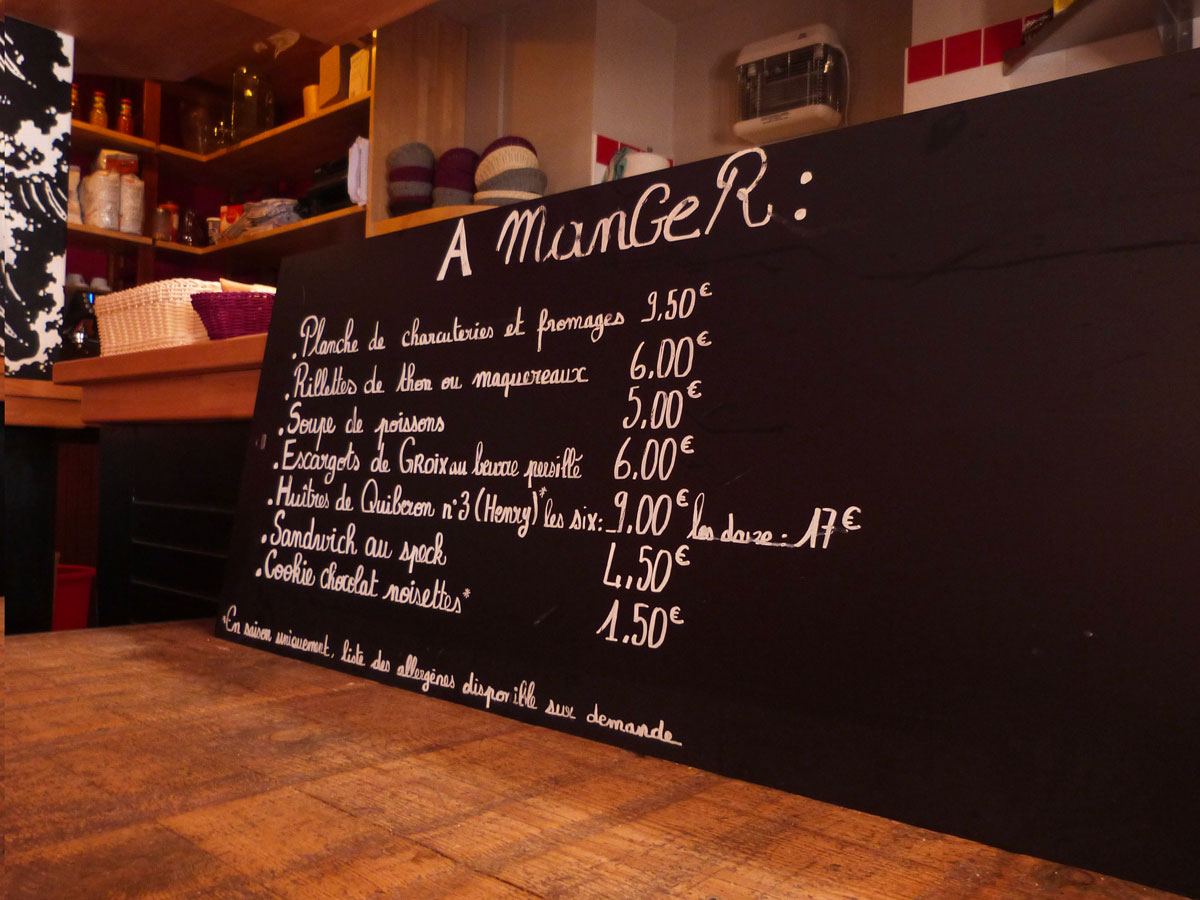 A ManGeR :
.Planche de charcuteries et fromages 9,50€
.Rillettes de thon ou maquereaux 6.00€
.Soupe de poissons 5,00€
.Escargots de GRoix au beurre persillé 6.00€
.Huîtres de Quiberon n°3 (Henry)* les six: 9.00€ les douze: 17€
.Sandwich au speck 4,50€
.Cookie chocolat noisettes* 1.50€
*En saison uniquement, liste des allergènes disponible sur demande